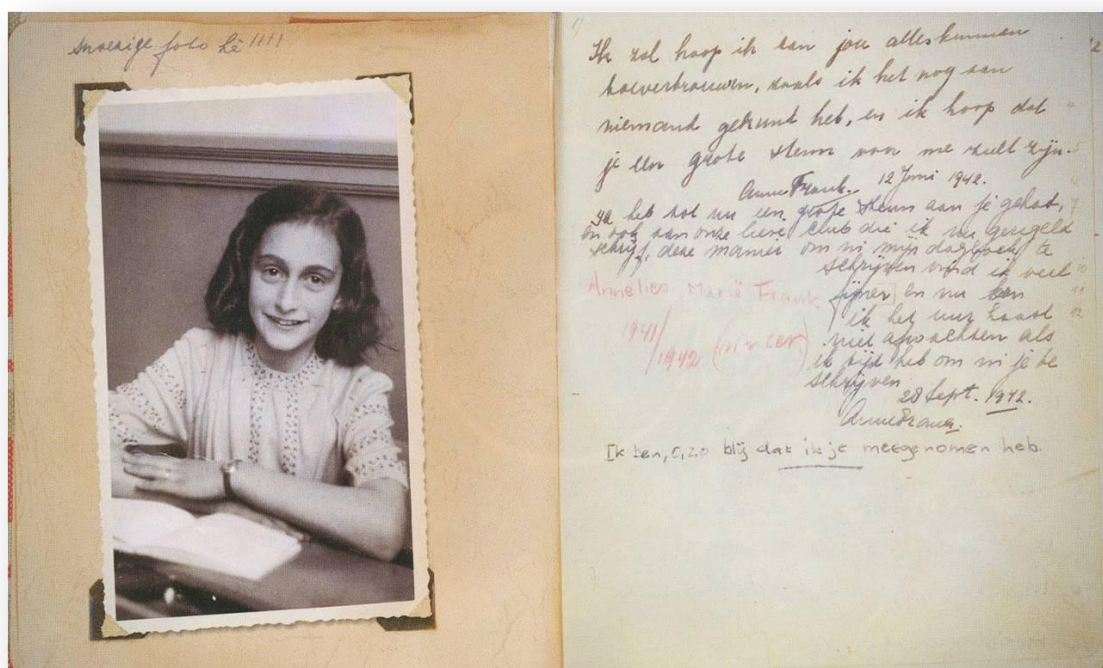 snoezige foto hè!!!!
Ik zal hoop ik aan jou alles kunnen
toevertrouwen, zoals ik het nog aan
niemand gekund heb, en ik hoop dat
je een grote steun voor me zult zijn.
Anne Frank. 12 Juni 1942.
Ik heb tot nu een grote steun aan je gehad,
en ook aan onze lieve club die ik nu geregeld
schrijf, deze manier om in mijn dagboek te
schrijven vind ik veel
fijner en nu kan
Annelies Marie Frank
ik het uur haast
1941/1942 (winter)
niet afwachten als
ik tijd heb om in je te
schrijven
28 Sept. 1942.
Anne Frank.
Ik ben, o, zo blij dat ik je meegenomen heb.